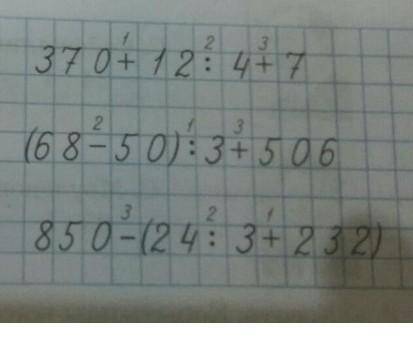 370 +¹ 12 :² 4 +³ 7
(68 -² 50) :¹ 3 +³ 506
850 -³ (24 :² 3 +¹ 232)